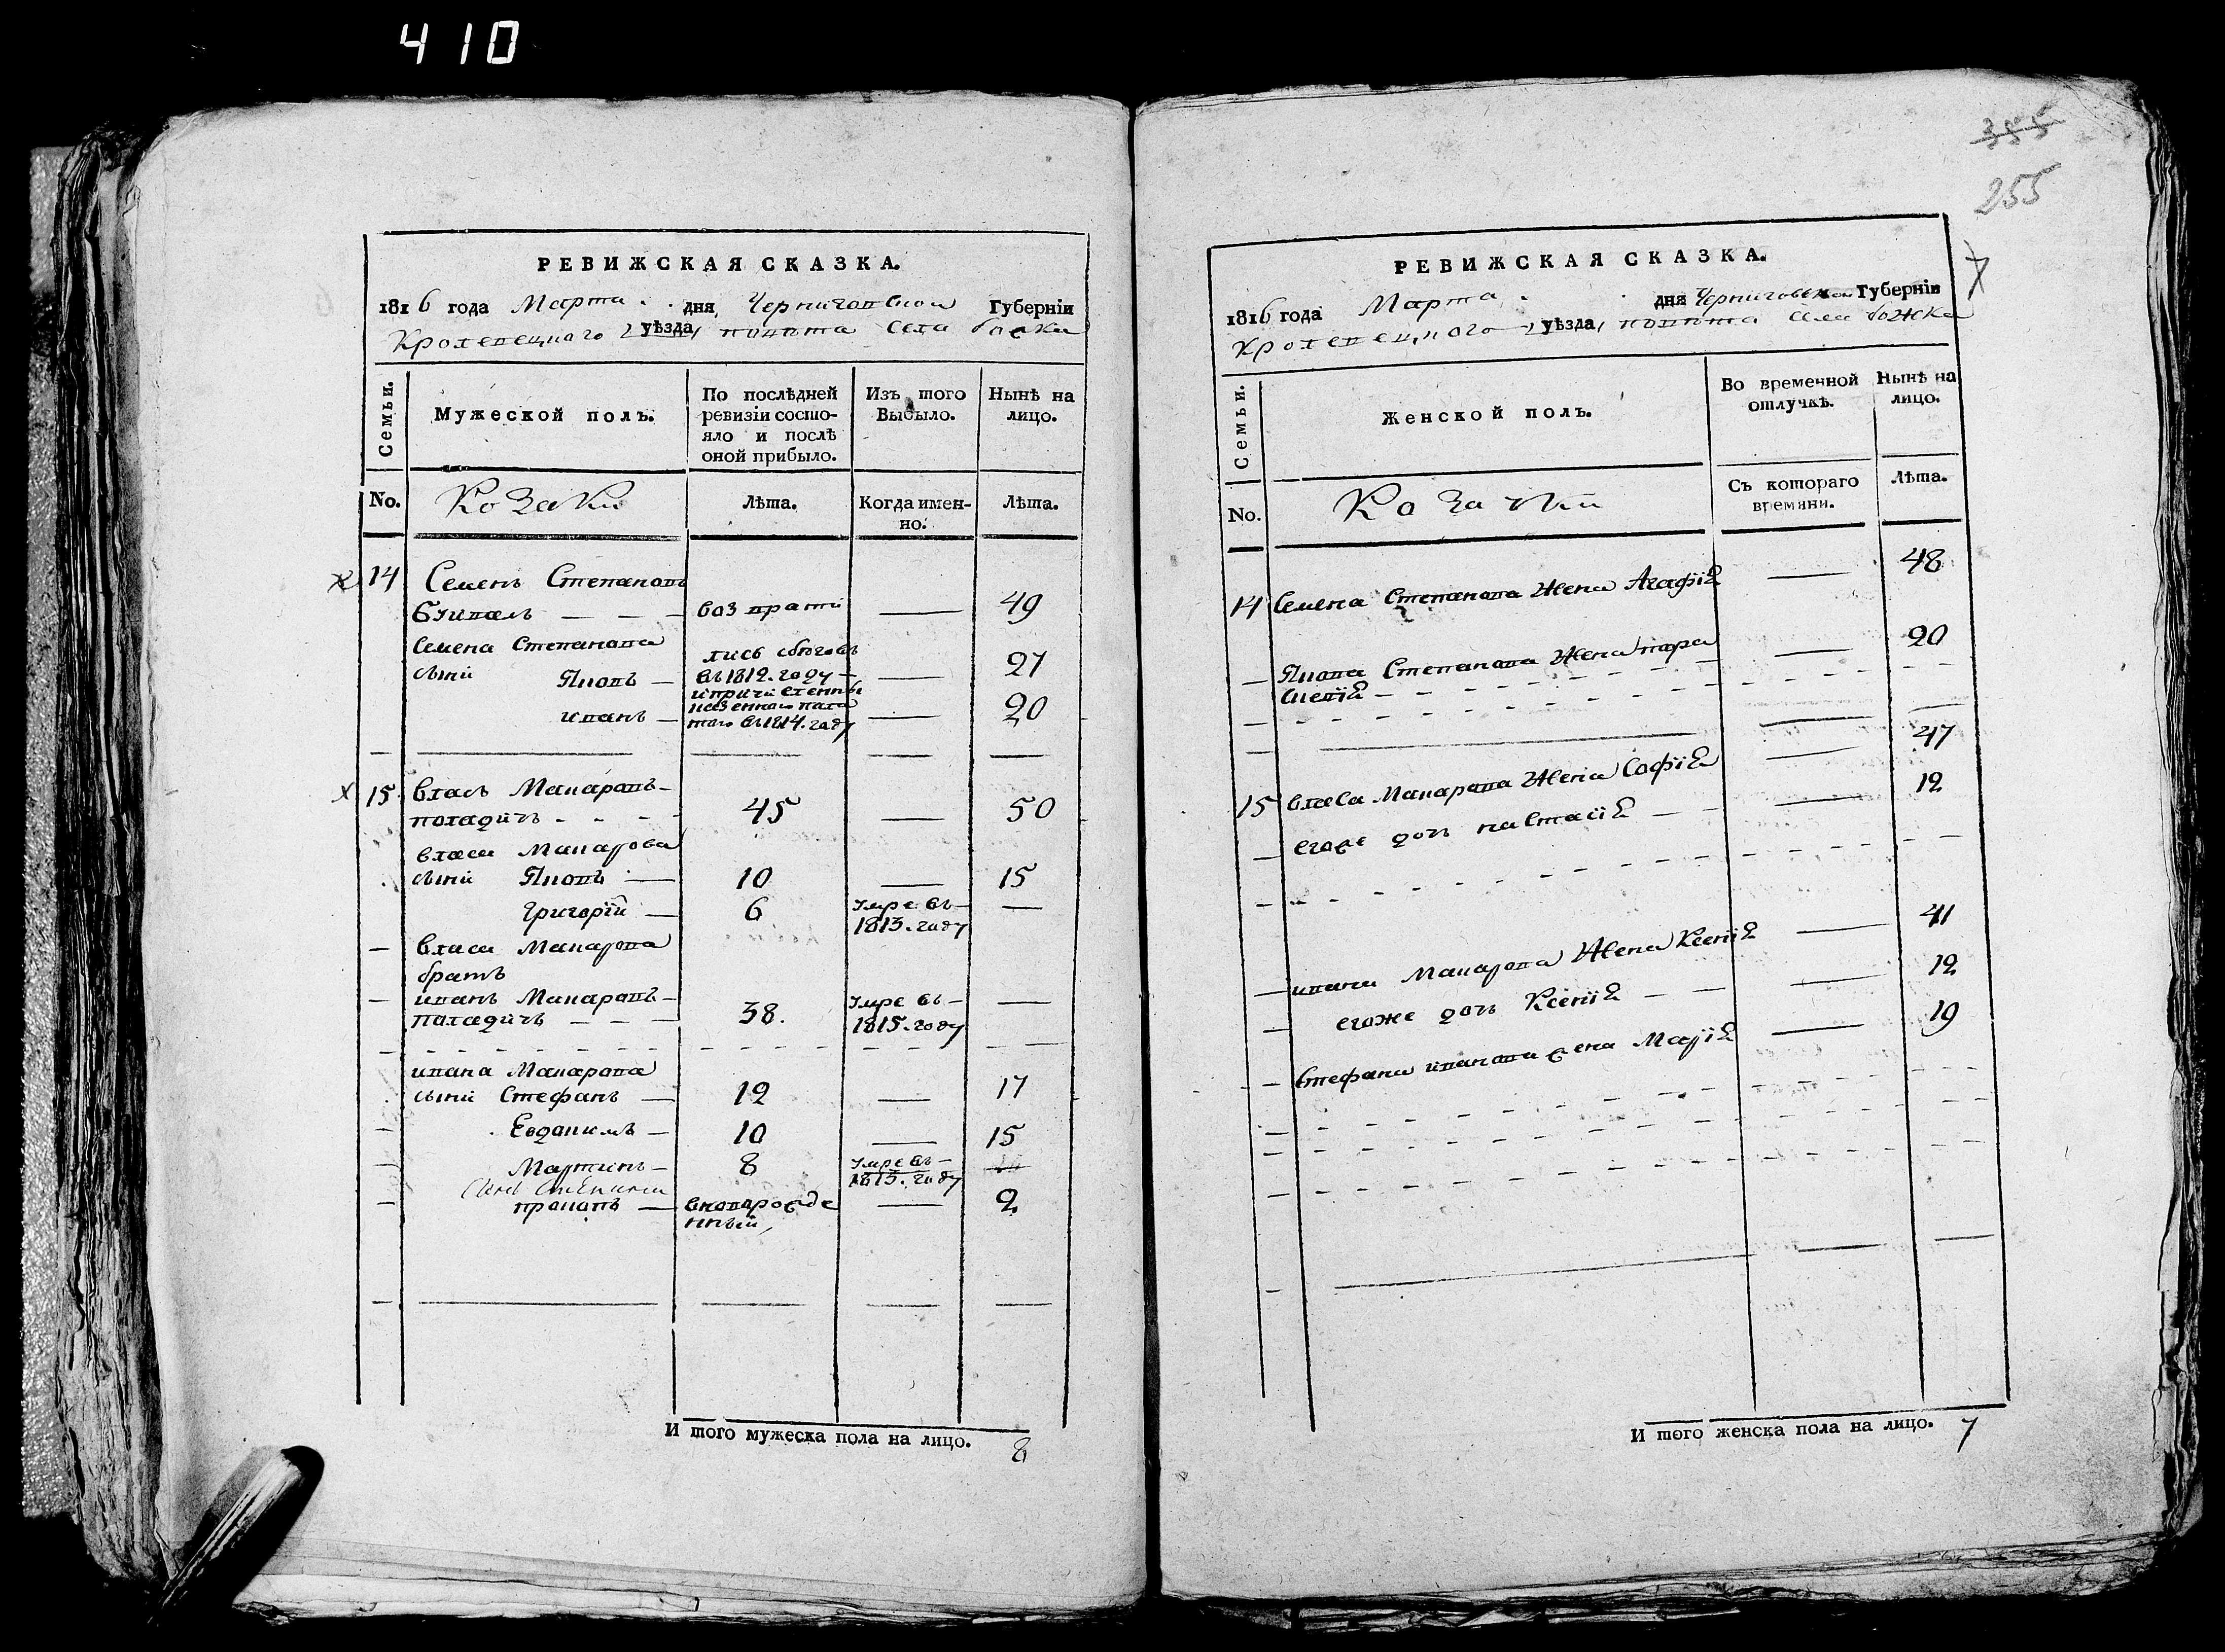 410
385
255
РЕВИЖСКАЯ СКАЗКА.
1816 года Марта дня Черниговской Губерніи
Кролевецкого уѣзда, повѣта Села божки
Семьи.
Мужеской полъ.
По послѣдней ревизіи состо-
яло и послѣ
оной прибыло.
Изъ того
Выбыло.
Нынѣ на
лицо.
No.
Козаки
Лѣта.
Когда имен-
но.
Лѣта.
14 Семенъ Степановъ
возврати — 49
Семена Степанова
лись
сыни Яковъ — въ 1812. году — — 27
иванъ — того въ 1814. году — 20
15 власъ Макаровъ —
45 — 50
власа Макарова
сыни Яковъ — 10 — 15
Григорій — 6 умре въ — —
1813. году
— власа Макарова
братъ
— иванъ Макаровъ — 38. умре въ — —
1815. году
ивана Макарова
сыни Стефанъ — 12 — 17
Евдокимъ — 10 — 15
Мартинъ — 8 умре въ —
1813. году
Сынъ
прокопъ — вновърожде — 2
нный,
И того мужеска пола на лицо. 8
РЕВИЖСКАЯ СКАЗКА.
1816 года Марта дня Черниговской Губерніи
Кролевецкого уѣзда, повѣта Села божки
Семьи.
Женской полъ.
Во временной
отлучкѣ.
Нынѣ на
лицо.
No.
Козачки
Съ котораго
времяни.
Лѣта.
14 Семена Степанова Жена Агафія — 48
— Якова Степанова Жена — 20
15 власа Макарова Жена Софія — 47
— егоже дочь настасія — 12
— ивана Макарова Жена Ксенія — 41
— егоже дочь Ксенія — 12
— Стефана иванова жена Марія — 19
И того женска пола на лицо. 7